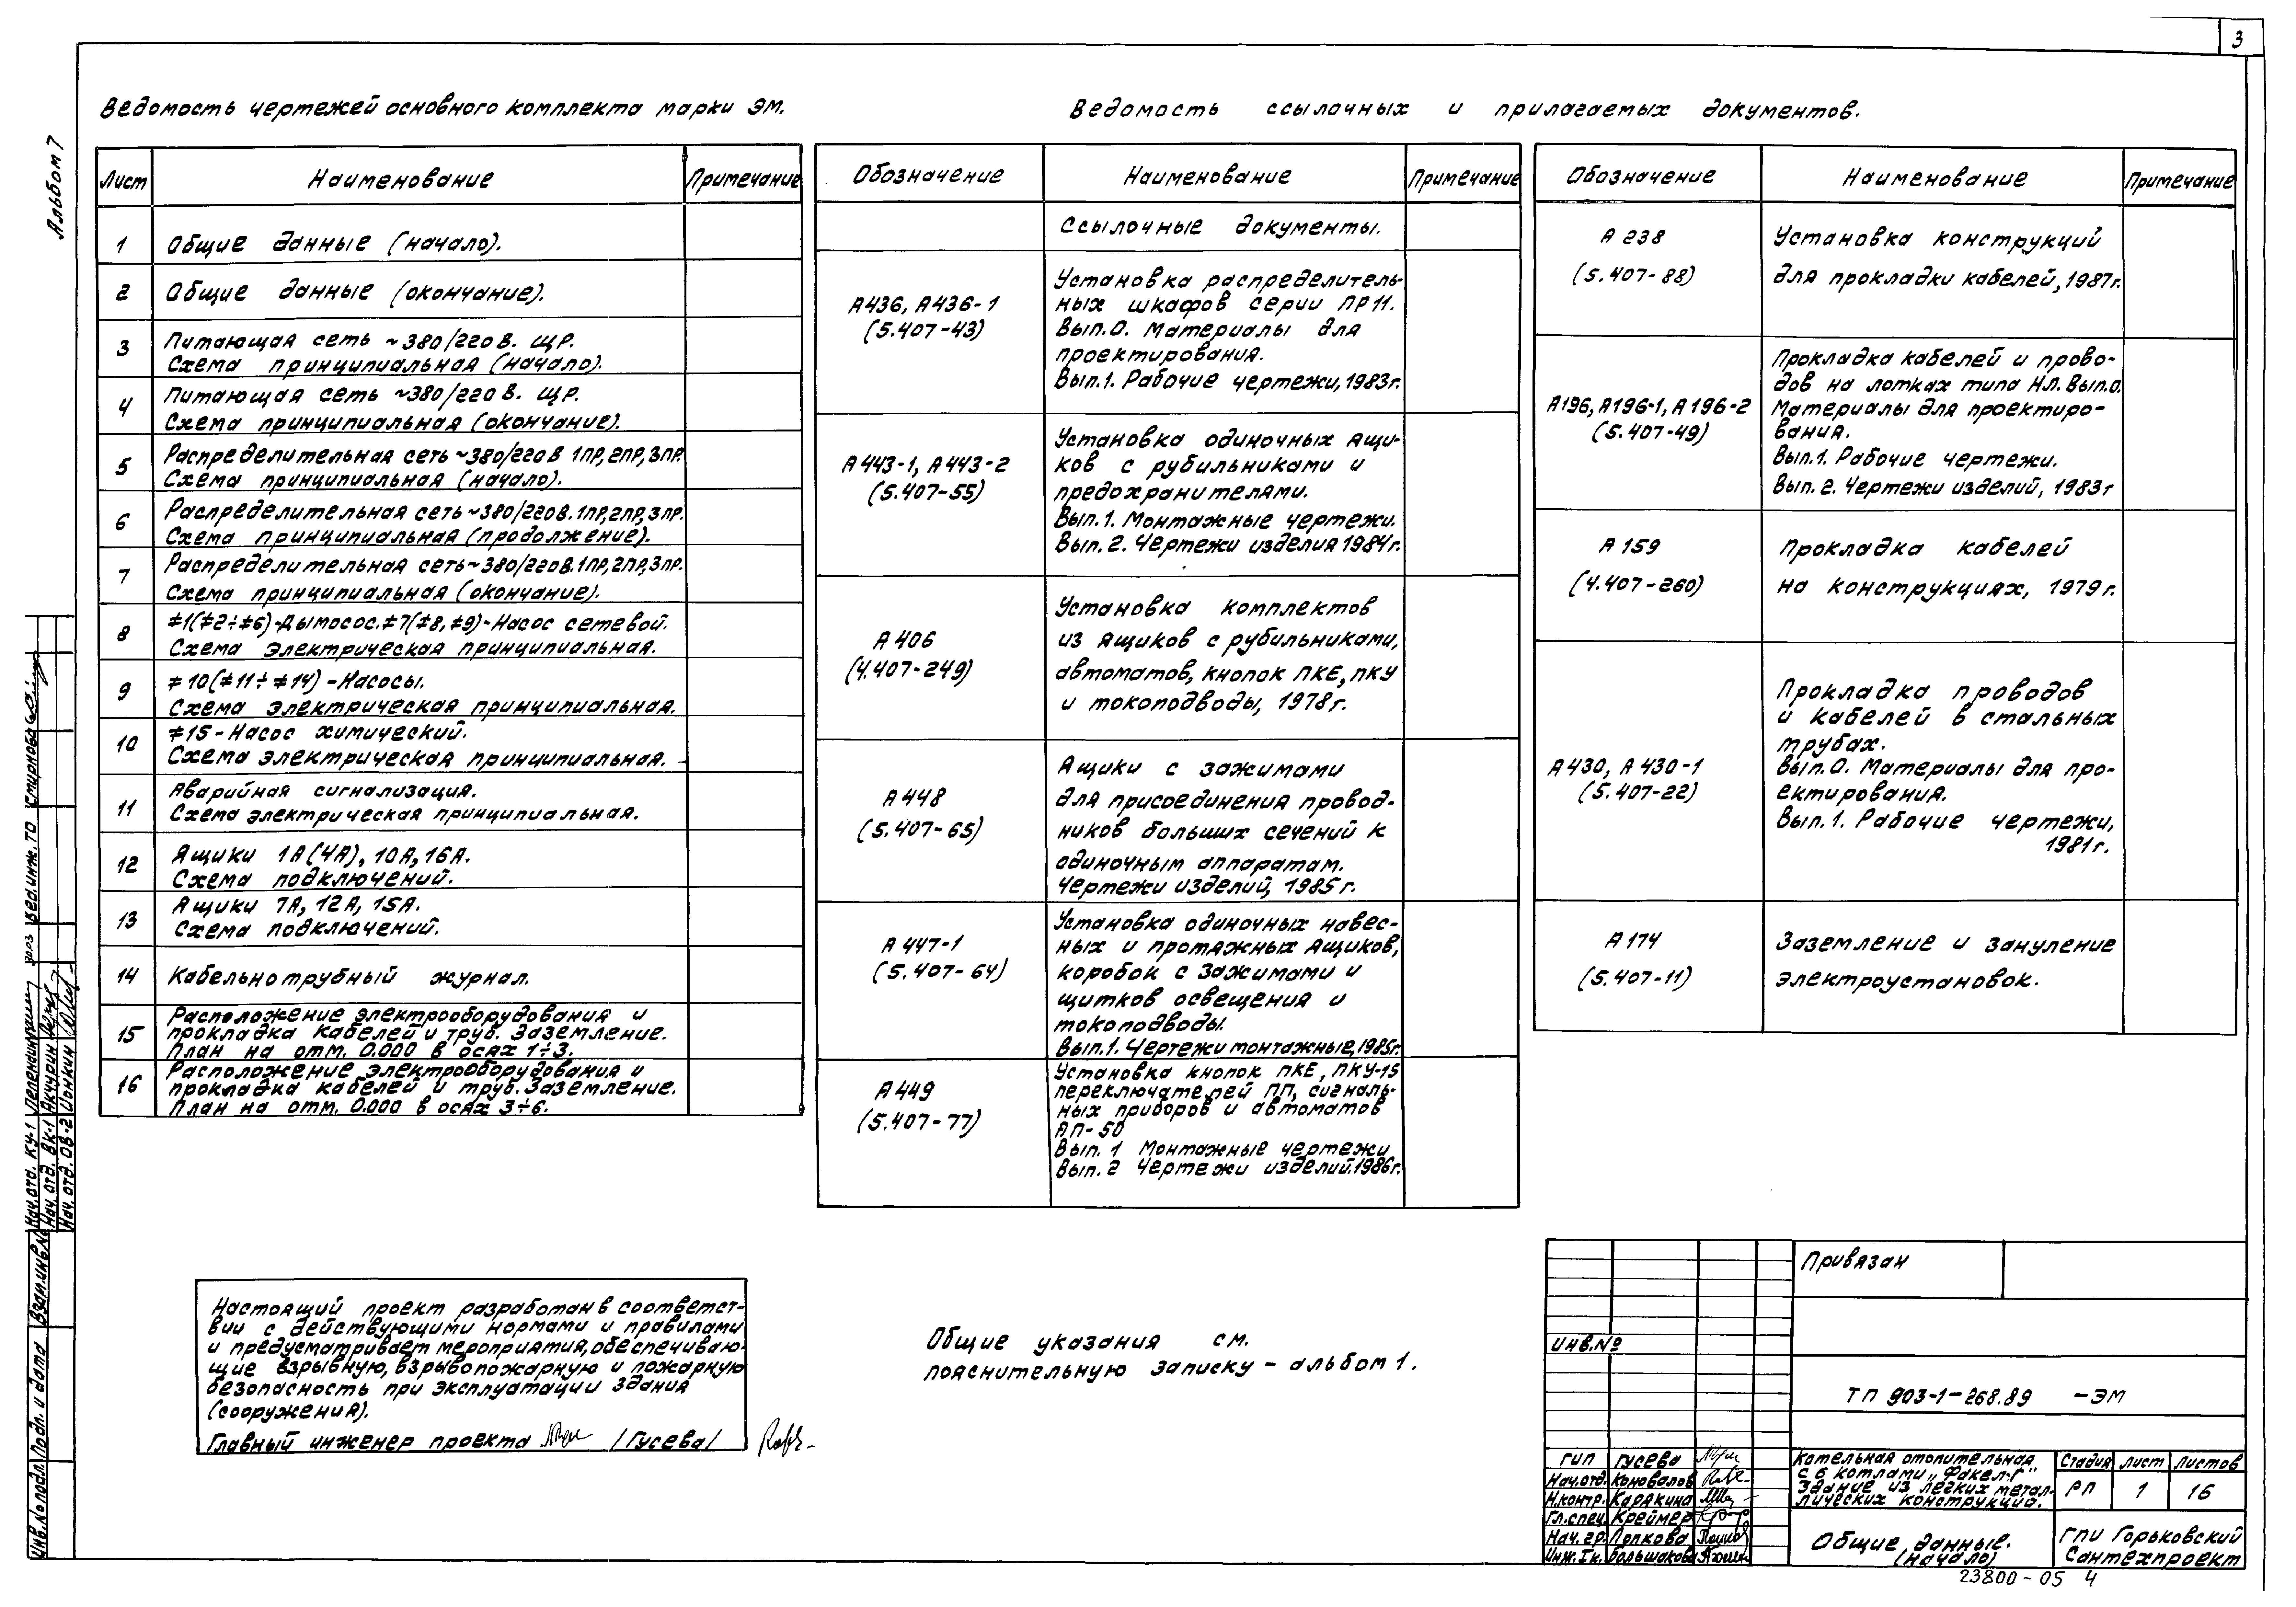 3
Альбом 7
Ведомость чертежей основного комплекта марки ЭМ.
Лист Наименование Примечание
1 Общие данные (начало).
2 Общие данные (окончание).
3 Питающая сеть ~380/220 В. ЩР.
Схема принципиальная (начало).
4 Питающая сеть ~380/220 В. ЩР.
Схема принципиальная (окончание).
5 Распределительная сеть ~380/220 В 1ПР, 2ПР, 3ПР.
Схема принципиальная (начало).
6 Распределительная сеть ~380/220 В. 1ПР, 2ПР, 3ПР.
Схема принципиальная (продолжение).
7 Распределительная сеть ~380/220 В. 1ПР, 2ПР, 3ПР.
Схема принципиальная (окончание).
8 ≠1(≠2÷≠6)-Дымосос. ≠7(≠8, ≠9)-Насос сетевой.
Схема электрическая принципиальная.
9 ≠10(≠11÷≠14)-Насосы.
Схема электрическая принципиальная.
10 ≠15-Насос химический.
Схема электрическая принципиальная.
11 Аварийная сигнализация.
Схема электрическая принципиальная.
12 Ящики 1А(4А), 10А, 16А.
Схема подключений.
13 Ящики 7А, 12А, 15А.
Схема подключений.
14 Кабельнотрубный журнал.
15 Расположение электрооборудования и
прокладка кабелей и труб. Заземление.
План на отм. 0.000 в осях 1÷3.
16 Расположение электрооборудования и
прокладка кабелей и труб. Заземление.
План на отм. 0.000 в осях 3÷6.
Ведомость ссылочных и прилагаемых документов.
Обозначение Наименование Примечание
Ссылочные документы.
А436, А436-1
(5.407-43)
Установка распределитель-
ных шкафов серии ПР11.
Вып.0. Материалы для
проектирования.
Вып.1. Рабочие чертежи, 1983г.
А443-1, А443-2
(5.407-55)
Установка одиночных ящи-
ков с рубильниками и
предохранителями.
Вып.1. Монтажные чертежи.
Вып.2. Чертежи изделия 1984г.
А 406
(4.407-249)
Установка комплектов
из ящиков с рубильниками,
автоматов, кнопок ПКЕ, ПКУ
и токоподводы, 1978г.
А 448
(5.407-65)
Ящики с зажимами
для присоединения провод-
ников больших сечений к
одиночным аппаратам.
Чертежи изделий, 1985г.
А 447-1
(5.407-64)
Установка одиночных навес-
ных и протяжных ящиков,
коробок с зажимами и
щитков освещения и
токоподводы.
Вып.1. Чертежи монтажные, 1985г.
А 449
(5.407-77)
Установка кнопок ПКЕ, ПКУ-15
переключателей ПП, сигналь-
ных приборов и автоматов
АП-50
Вып. 1 Монтажные чертежи
Вып. 2 Чертежи изделий. 1986г.
Обозначение Наименование Примечание
А 238
(5.407-88)
Установка конструкций
для прокладки кабелей, 1987г.
А196, А196-1, А196-2
(5.407-49)
Прокладка кабелей и прово-
дов на лотках типа НЛ. Вып.0.
Материалы для проектиро-
вания.
Вып.1. Рабочие чертежи.
Вып. 2. Чертежи изделий, 1983г
А 159
(4.407-260)
Прокладка кабелей
на конструкциях, 1979г.
А430, А 430-1
(5.407-22)
Прокладка проводов
и кабелей в стальных
трубах.
Вып.0. Материалы для про-
ектирования.
Вып. 1. Рабочие чертежи,
1981г.
А 174
(5.407-11)
Заземление и зануление
электроустановок.
Настоящий проект разработан в соответст-
вии с действующими нормами и правилами
и предусматривает мероприятия, обеспечиваю-
щие взрывную, взрывопожарную и пожарную
безопасность при эксплуатации здания
(сооружения).
Главный инженер проекта /Гусева/
Общие указания см.
пояснительную записку - альбом 1.
Привязан
Инв.№
ТП 903-1-268.89 -ЭМ
ГИП Гусева
Нач.отд. Коновалов
Н.контр. Карякина
Гл.спец. Креймер
Нач.гр. Попкова
Инж.Iк. Большакова
Котельная отопительная
с 6 котлами „Факел-Г"
Здание из легких метал-
лических конструкций.
Стадия Лист Листов
РП 1 16
Общие данные.
(начало)
ГПИ Горьковский
Сантехпроект
23800-05 4
Вед.инж. ТО Смирнова
Нач.отд. КУ-1
Нач.отд. ВК-1 Акчурин
Нач.отд. ОВ-2 Цонкин
Взам.инв.№
Подп. и дата
Инв.№ подл.